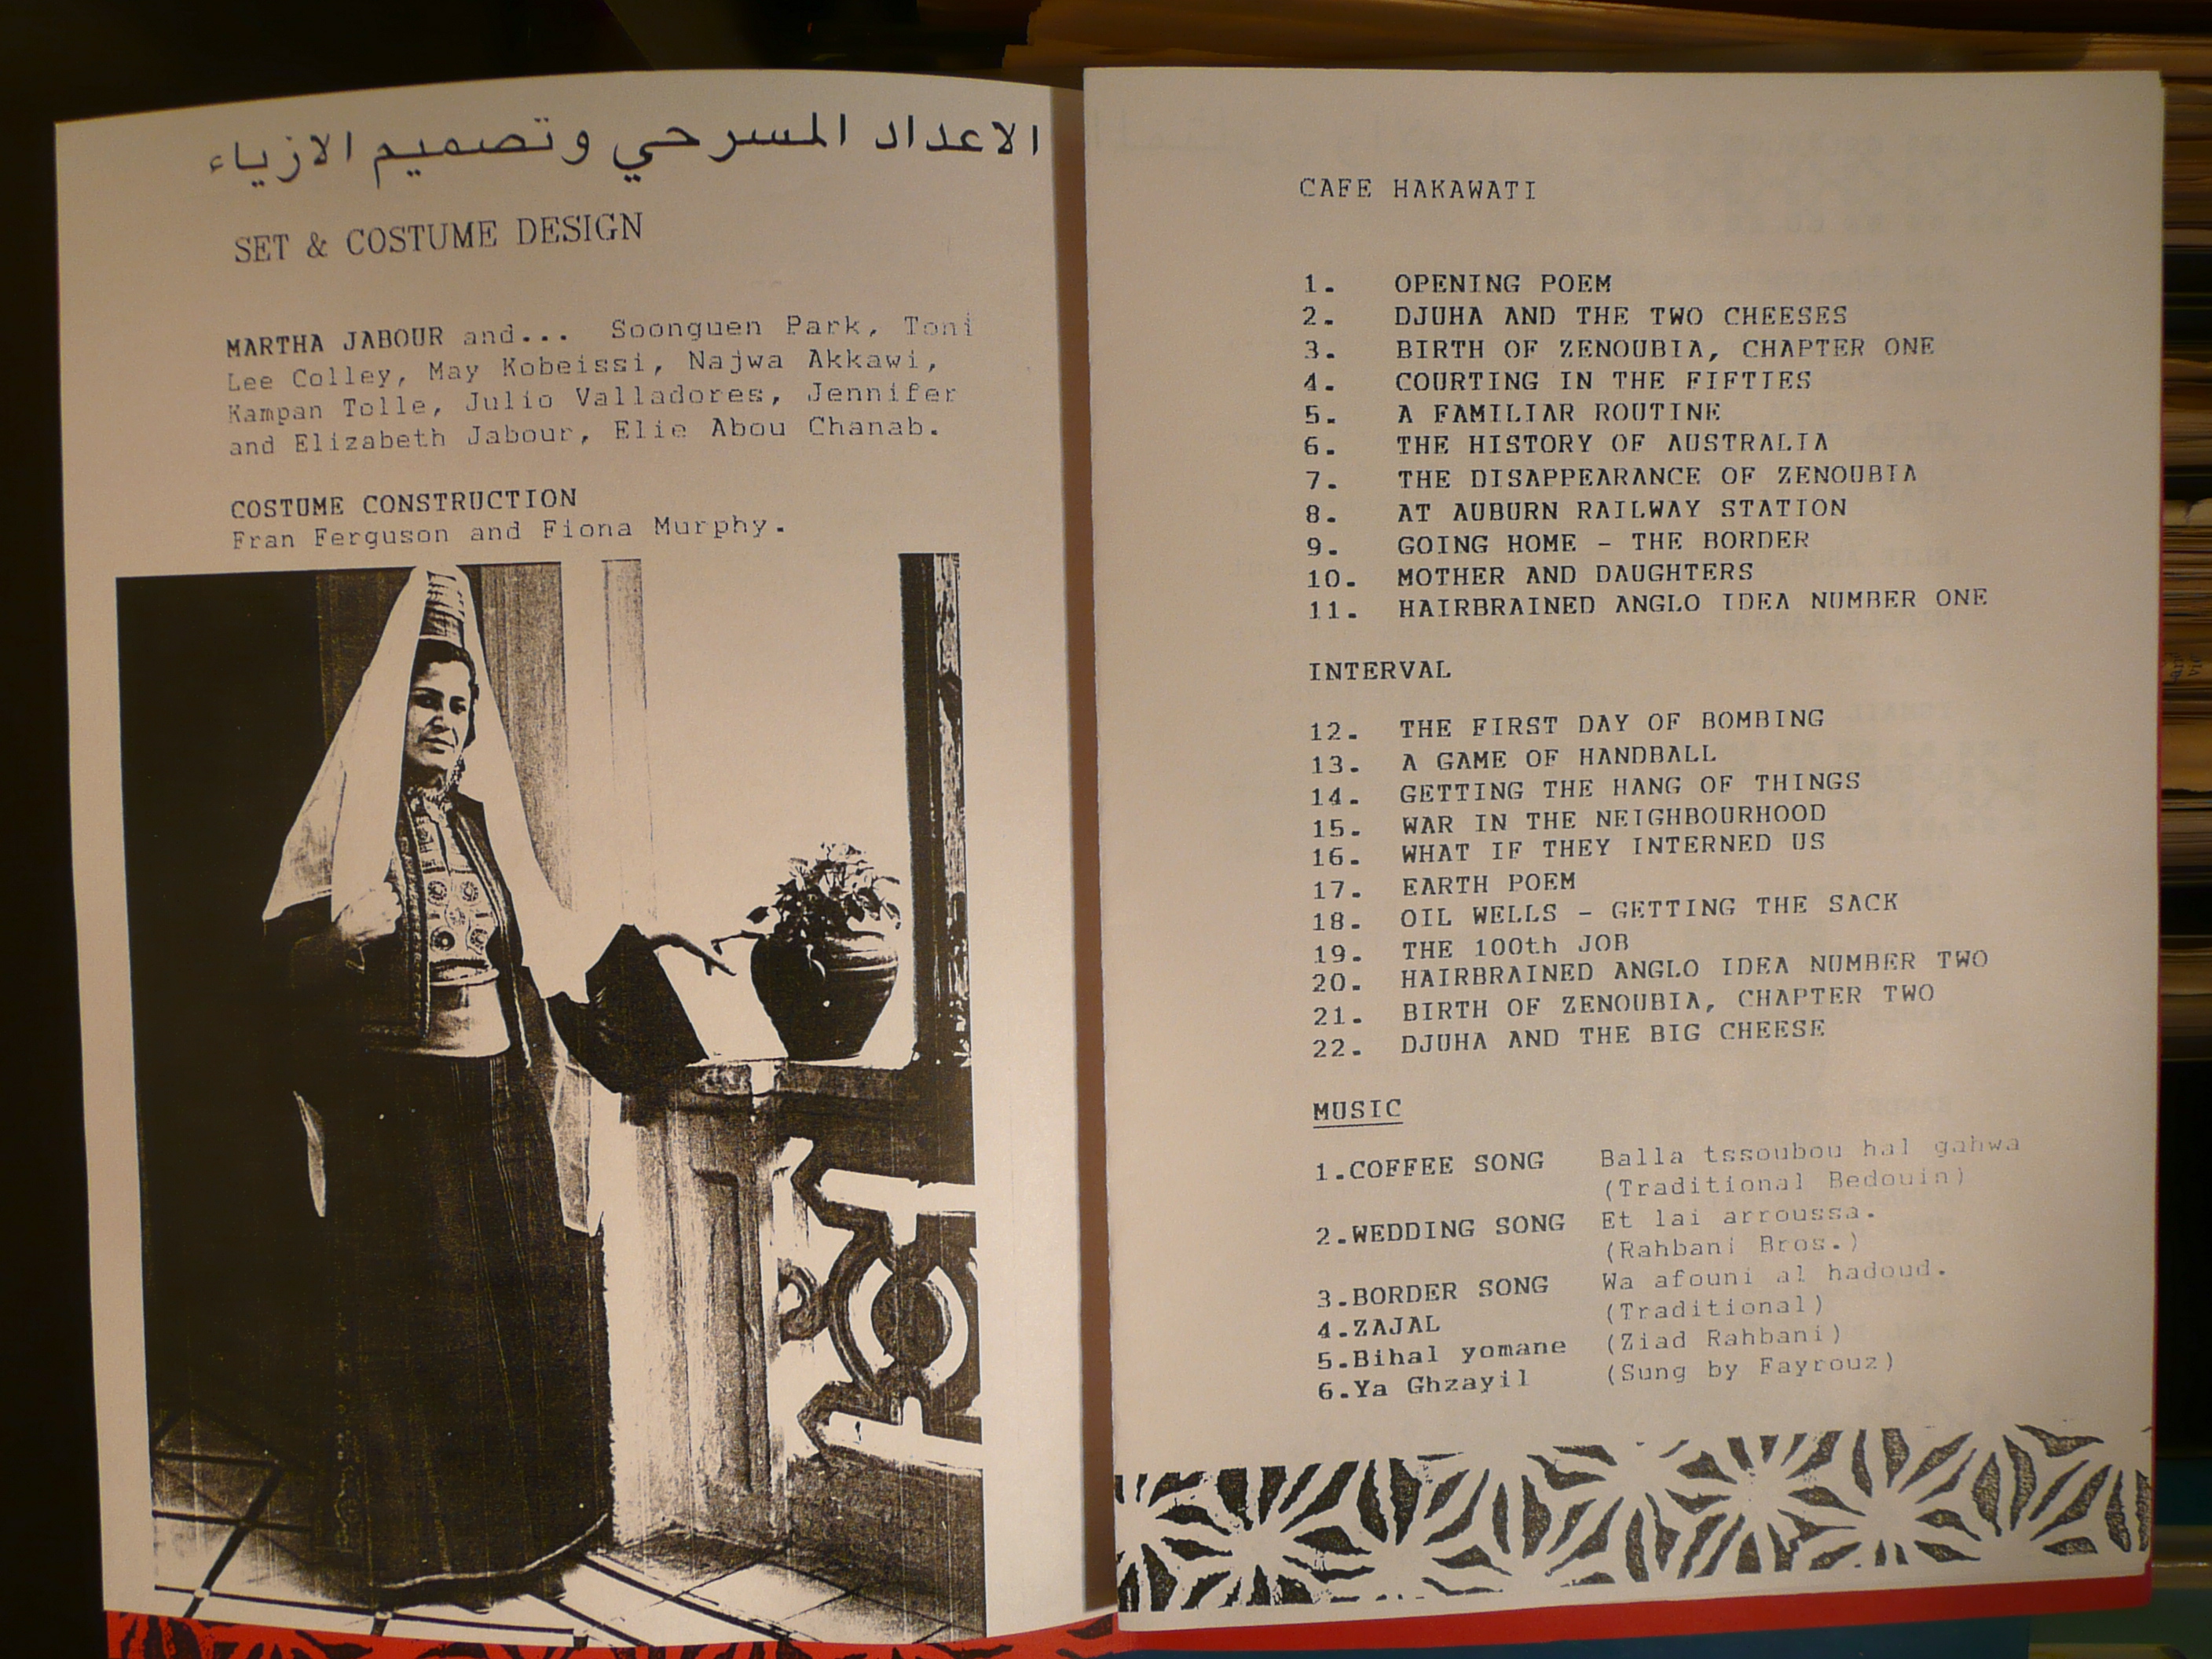 الاعداد المسرحي وتصميم الازياء
SET & COSTUME DESIGN
MARTHA JABOUR and... Soonguen Park, Toni
Lee Colley, May Kobeissi, Najwa Akkawi,
Kampan Tolle, Julio Valladores, Jennifer
and Elizabeth Jabour, Elie Abou Chanab.
COSTUME CONSTRUCTION
Fran Ferguson and Fiona Murphy.
CAFE HAKAWATI
1. OPENING POEM
2. DJUHA AND THE TWO CHEESES
3. BIRTH OF ZENOUBIA, CHAPTER ONE
4. COURTING IN THE FIFTIES
5. A FAMILIAR ROUTINE
6. THE HISTORY OF AUSTRALIA
7. THE DISAPPEARANCE OF ZENOUBIA
8. AT AUBURN RAILWAY STATION
9. GOING HOME - THE BORDER
10. MOTHER AND DAUGHTERS
11. HAIRBRAINED ANGLO IDEA NUMBER ONE
INTERVAL
12. THE FIRST DAY OF BOMBING
13. A GAME OF HANDBALL
14. GETTING THE HANG OF THINGS
15. WAR IN THE NEIGHBOURHOOD
16. WHAT IF THEY INTERNED US
17. EARTH POEM
18. OIL WELLS - GETTING THE SACK
19. THE 100th JOB
20. HAIRBRAINED ANGLO IDEA NUMBER TWO
21. BIRTH OF ZENOUBIA, CHAPTER TWO
22. DJUHA AND THE BIG CHEESE
MUSIC
1.COFFEE SONG Balla tssoubou hal gahwa
(Traditional Bedouin)
2.WEDDING SONG Et lai arroussa.
(Rahbani Bros.)
3.BORDER SONG Wa afouni al hadoud.
4.ZAJAL (Traditional)
5.Bihal yomane (Ziad Rahbani)
6.Ya Ghzayil (Sung by Fayrouz)